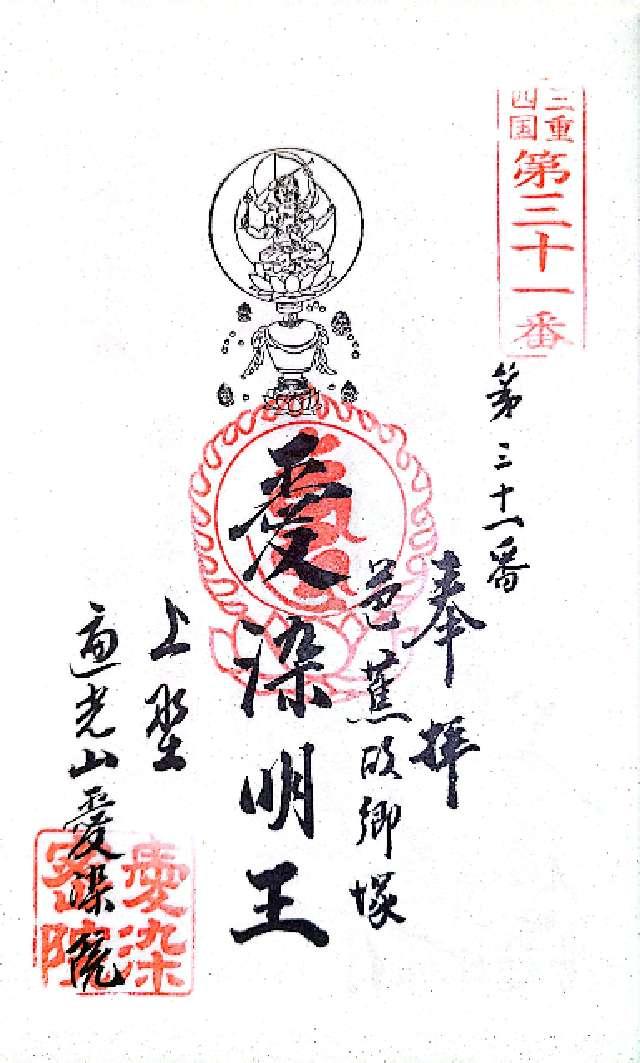 三重
四国
第三十一番
第三十一番
奉拝
芭蕉故郷塚
愛染明王
上野
遍光山愛染院
愛染
密院